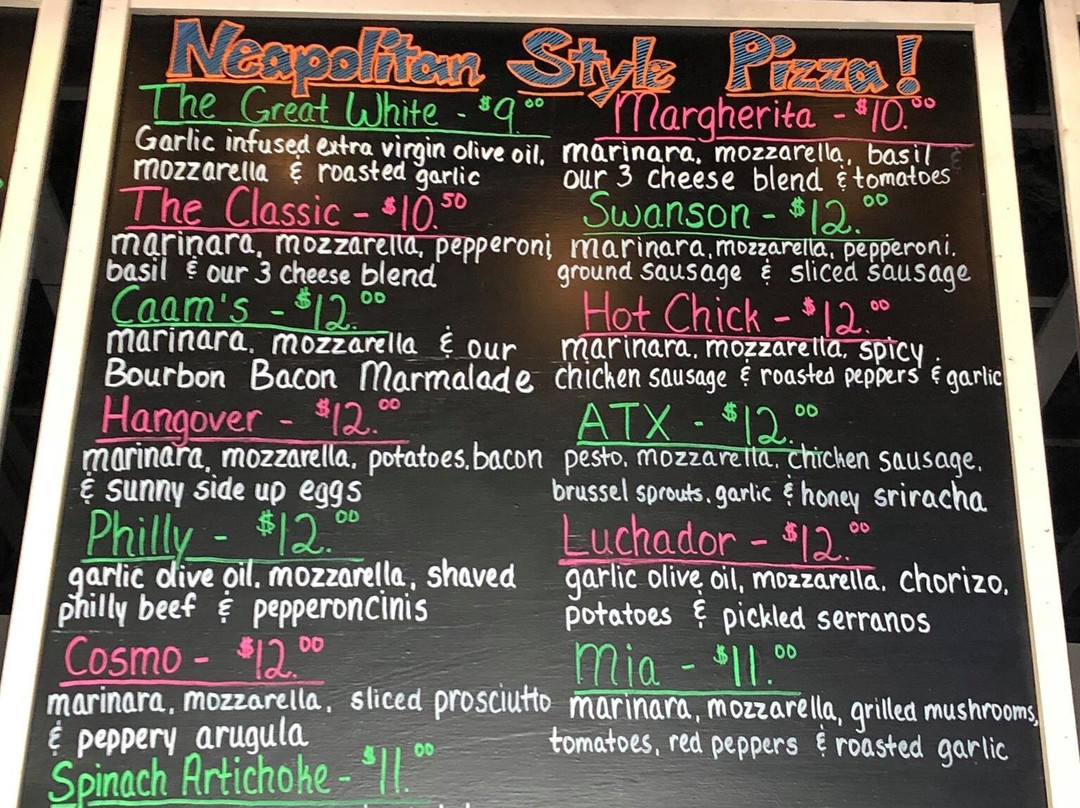 Neapolitan Style Pizza!
The Great White - $9.00
Garlic infused extra virgin olive oil,
mozzarella & roasted garlic
The Classic - $10.50
marinara, mozzarella, pepperoni,
basil & our 3 cheese blend
Caam's - $12.00
marinara, mozzarella & our
Bourbon Bacon Marmalade
Hangover - $12.00
marinara, mozzarella, potatoes, bacon
& sunny side up eggs
Philly - $12.00
garlic olive oil, mozzarella, shaved
philly beef & pepperoncinis
Cosmo - $12.00
marinara, mozzarella, sliced prosciutto
& peppery arugula
Spinach Artichoke - $11.00
Margherita - $10.00
marinara, mozzarella, basil &
our 3 cheese blend & tomatoes
Swanson - $12.00
marinara, mozzarella, pepperoni,
ground sausage & sliced sausage
Hot Chick - $12.00
marinara, mozzarella, spicy
chicken sausage & roasted peppers & garlic
ATX - $12.00
pesto, mozzarella, chicken sausage,
brussel sprouts, garlic & honey sriracha
Luchador - $12.00
garlic olive oil, mozzarella, chorizo,
potatoes & pickled serranos
Mia - $11.00
marinara, mozzarella, grilled mushrooms,
tomatoes, red peppers & roasted garlic